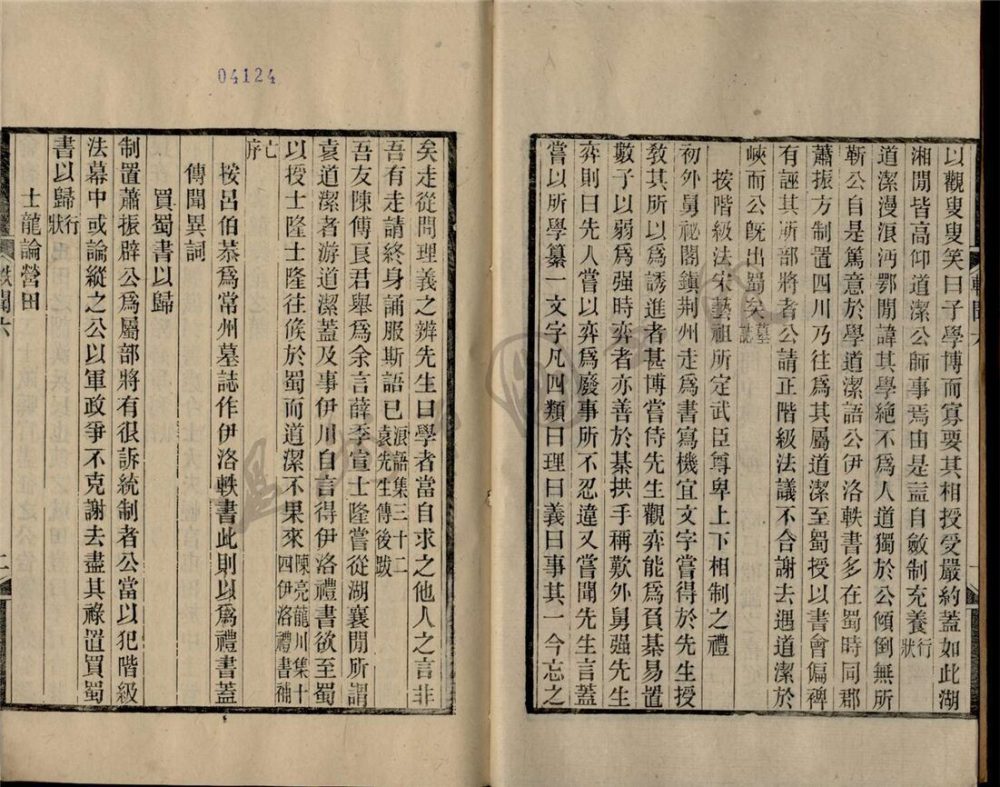 以觀叟叟笑曰子學博而寡要其相授受嚴約蓋如此湖
湘閒皆高仰道潔公師事焉由是益自斂制充養行狀
道潔漫浪沔鄂閒諱其學絶不爲人道獨於公傾倒無所
靳公自是篤意於學道潔語公伊洛軼書多在蜀時同郡
蕭振方制置四川乃往爲其屬道潔至蜀授以書會偏裨
有誣其所部將者公請正階級法議不合謝去遇道潔於
峽而公旣出蜀矣墓誌
按階級法宋藝祖所定武臣尊卑上下相制之禮
初外舅祕閣鎭荆州走爲書寫機宜文字嘗得於先生授
敎其所以爲誘進者甚博嘗侍先生觀弈能爲負棊易置
數子以弱爲强時弈者亦善於棊拱手稱歎外舅强先生
弈則曰先人嘗以弈爲廢事所不忍違又嘗聞先生言蓋
嘗以所學纂一文字凡四類曰理曰義曰事其一今忘之
矣走從問理義之辨先生曰學者當自求之他人之言非
吾有走請終身誦服斯語已浪語集三十二袁先生傳後跋
吾友陳傅良君舉爲余言薛季宣士隆嘗從湖襄閒所謂
袁道潔者游道潔蓋及事伊川自言得伊洛禮書欲至蜀
以授士隆士隆往候於蜀而道潔不果來陳亮龍川集十四伊洛禮書補
亡序
按呂伯恭爲常州墓誌作伊洛軼書此則以爲禮書蓋
傳聞異詞
買蜀書以歸
制置蕭振辟公爲屬部將有很訴統制者公當以犯階級
法幕中或論縱之公以軍政爭不克謝去盡其祿置買蜀
書以歸行狀
士龍論營田
軼聞六
二
04124